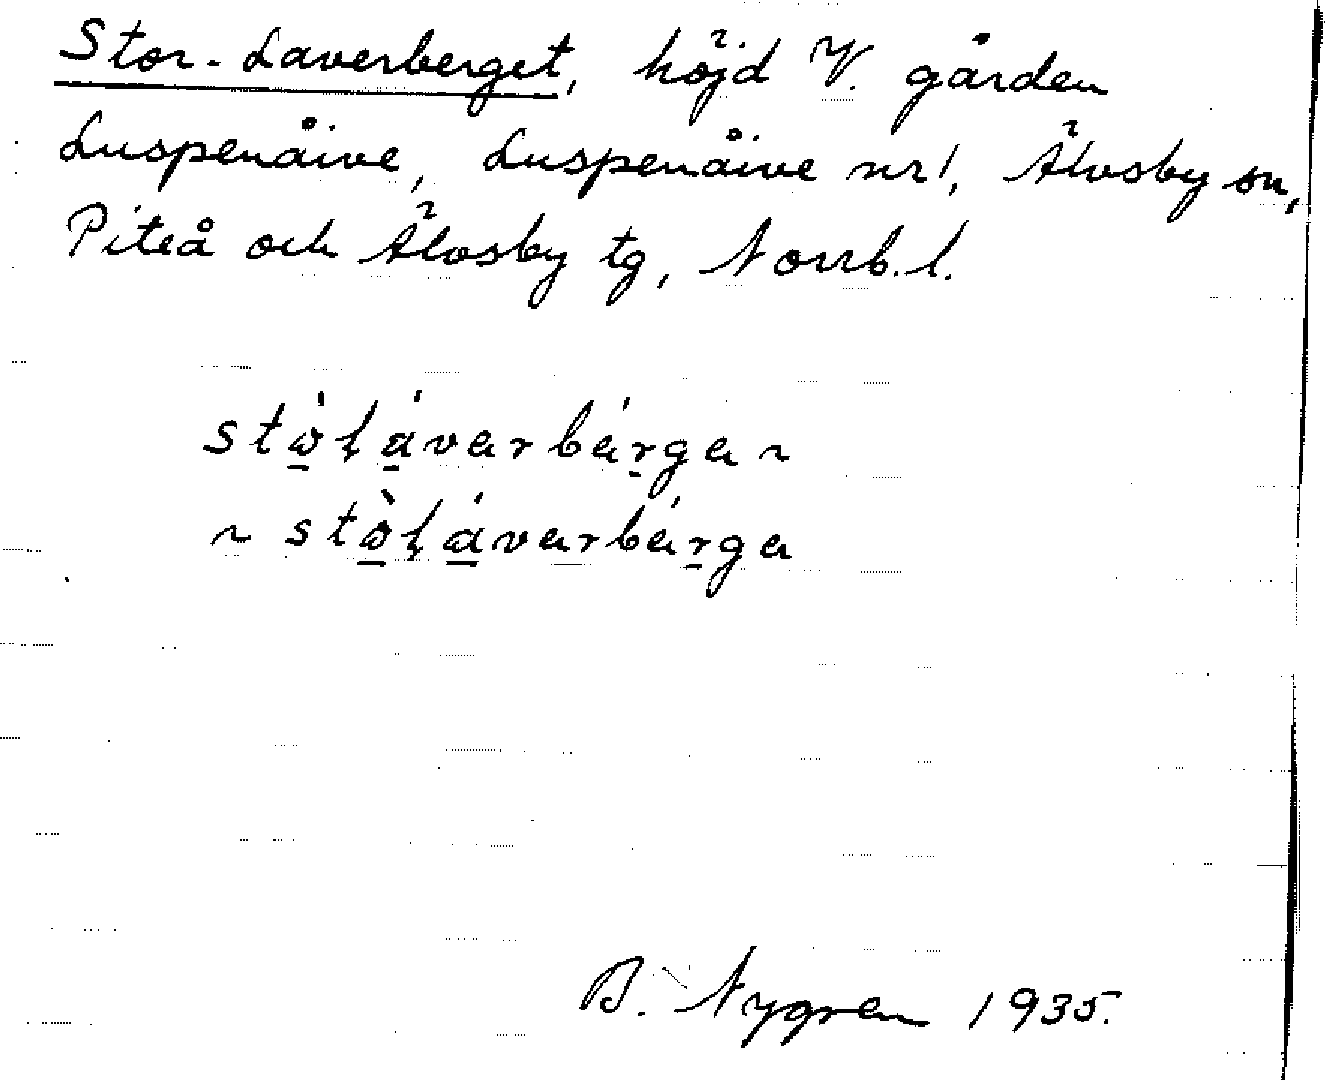 Stor-Laverberget, höjd V. gården
Luspenåive, Luspenåive nr 1, Älvsby sn,
Piteå och Älvsby tg, Norrb. l.
stὼ̠ļá̠varbárga ~
~ stὼ̠ļá̠varbárga
B. Nygren 1935.